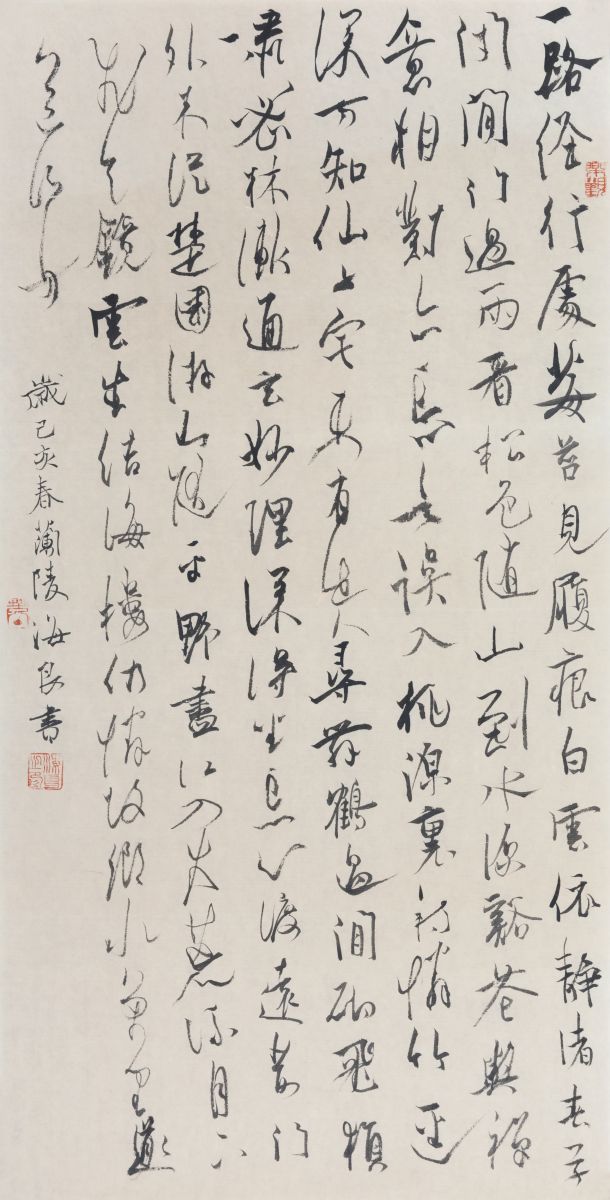 一路経行處莓苔見履痕白雲依静渚春草
閉閒門過雨看松色随山到水源谿花與禅
意相對亦忘言誤入桃源裏初憐竹逕
深方知仙子宅未有世人尋舞鶴過閒砌飛猿
嘯密林漸通玄妙理深得坐忘心渡遠荆門
外来從楚國游山随平野盡江入大荒流月下
飛天鏡雲生結海樓仍憐故鄉水萬里
送行舟
歲己亥春蘭陵海良書